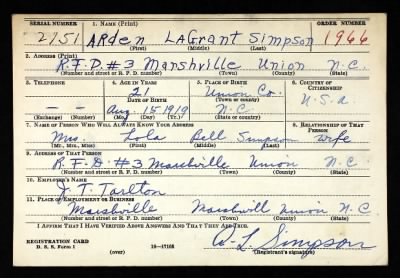 SERIAL NUMBER 1. NAME (Print) ORDER NUMBER
2151 ARden LAGrant Simpson 1966
(First) (Middle) (Last)
2. ADDRESS (Print)
R.F.D. #3 Marshville Union N.C.
(Number and street or R. F. D. number) (Town) (County) (State)
3. TELEPHONE 4. AGE IN YEARS 5. PLACE OF BIRTH 6. COUNTRY OF CITIZENSHIP
21 Union Co.
DATE OF BIRTH (Town or county)
Aug. 15 1919 N.C. U.S.a.
(Exchange) (Number) (Mo.) (Day) (Yr.) (State or country)
7. NAME OF PERSON WHO WILL ALWAYS KNOW YOUR ADDRESS 8. RELATIONSHIP OF THAT PERSON
Mrs. Lola Bell Simpson wife
(Mr., Mrs., Miss) (First) (Middle) (Last)
9. ADDRESS OF THAT PERSON
R.F.D. #3 Marshville Union N.C.
(Number and street or R. F. D. number) (Town) (County) (State)
10. EMPLOYER'S NAME
J. T. Tarlton
11. PLACE OF EMPLOYMENT OR BUSINESS
Marshville Marshvill Union N.C.
(Number and street or R. F. D. number) (Town) (County) (State)
I AFFIRM THAT I HAVE VERIFIED ABOVE ANSWERS AND THAT THEY ARE TRUE.
REGISTRATION CARD
D. S. S. Form 1 (over) 16—17105 A. L. Simpson
(Registrant's signature)